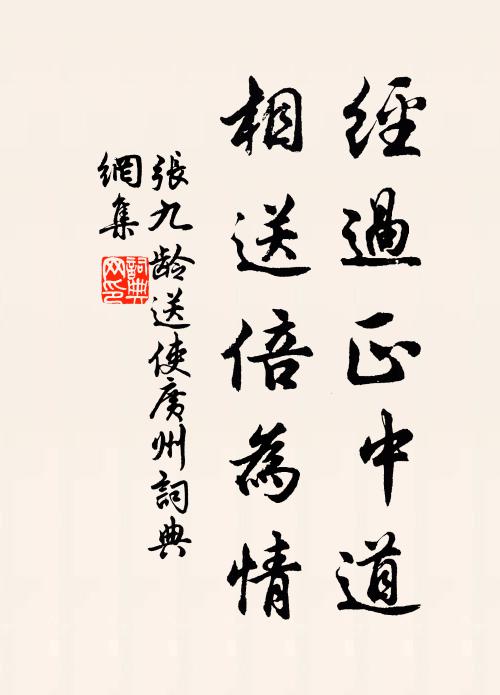 經過正中道
相送倍為情
張九龄送使廣州詞典
網集
詞典網印